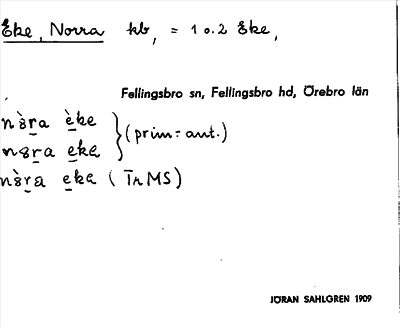 Eke, Norra kb, = 1 o. 2 Eke,
Fellingsbro sn, Fellingsbro hd, Örebro län
nòra èke
nora eke
(prim:-ant.)
nòra eke (Tr MS)
JÖRAN SAHLGREN 1909